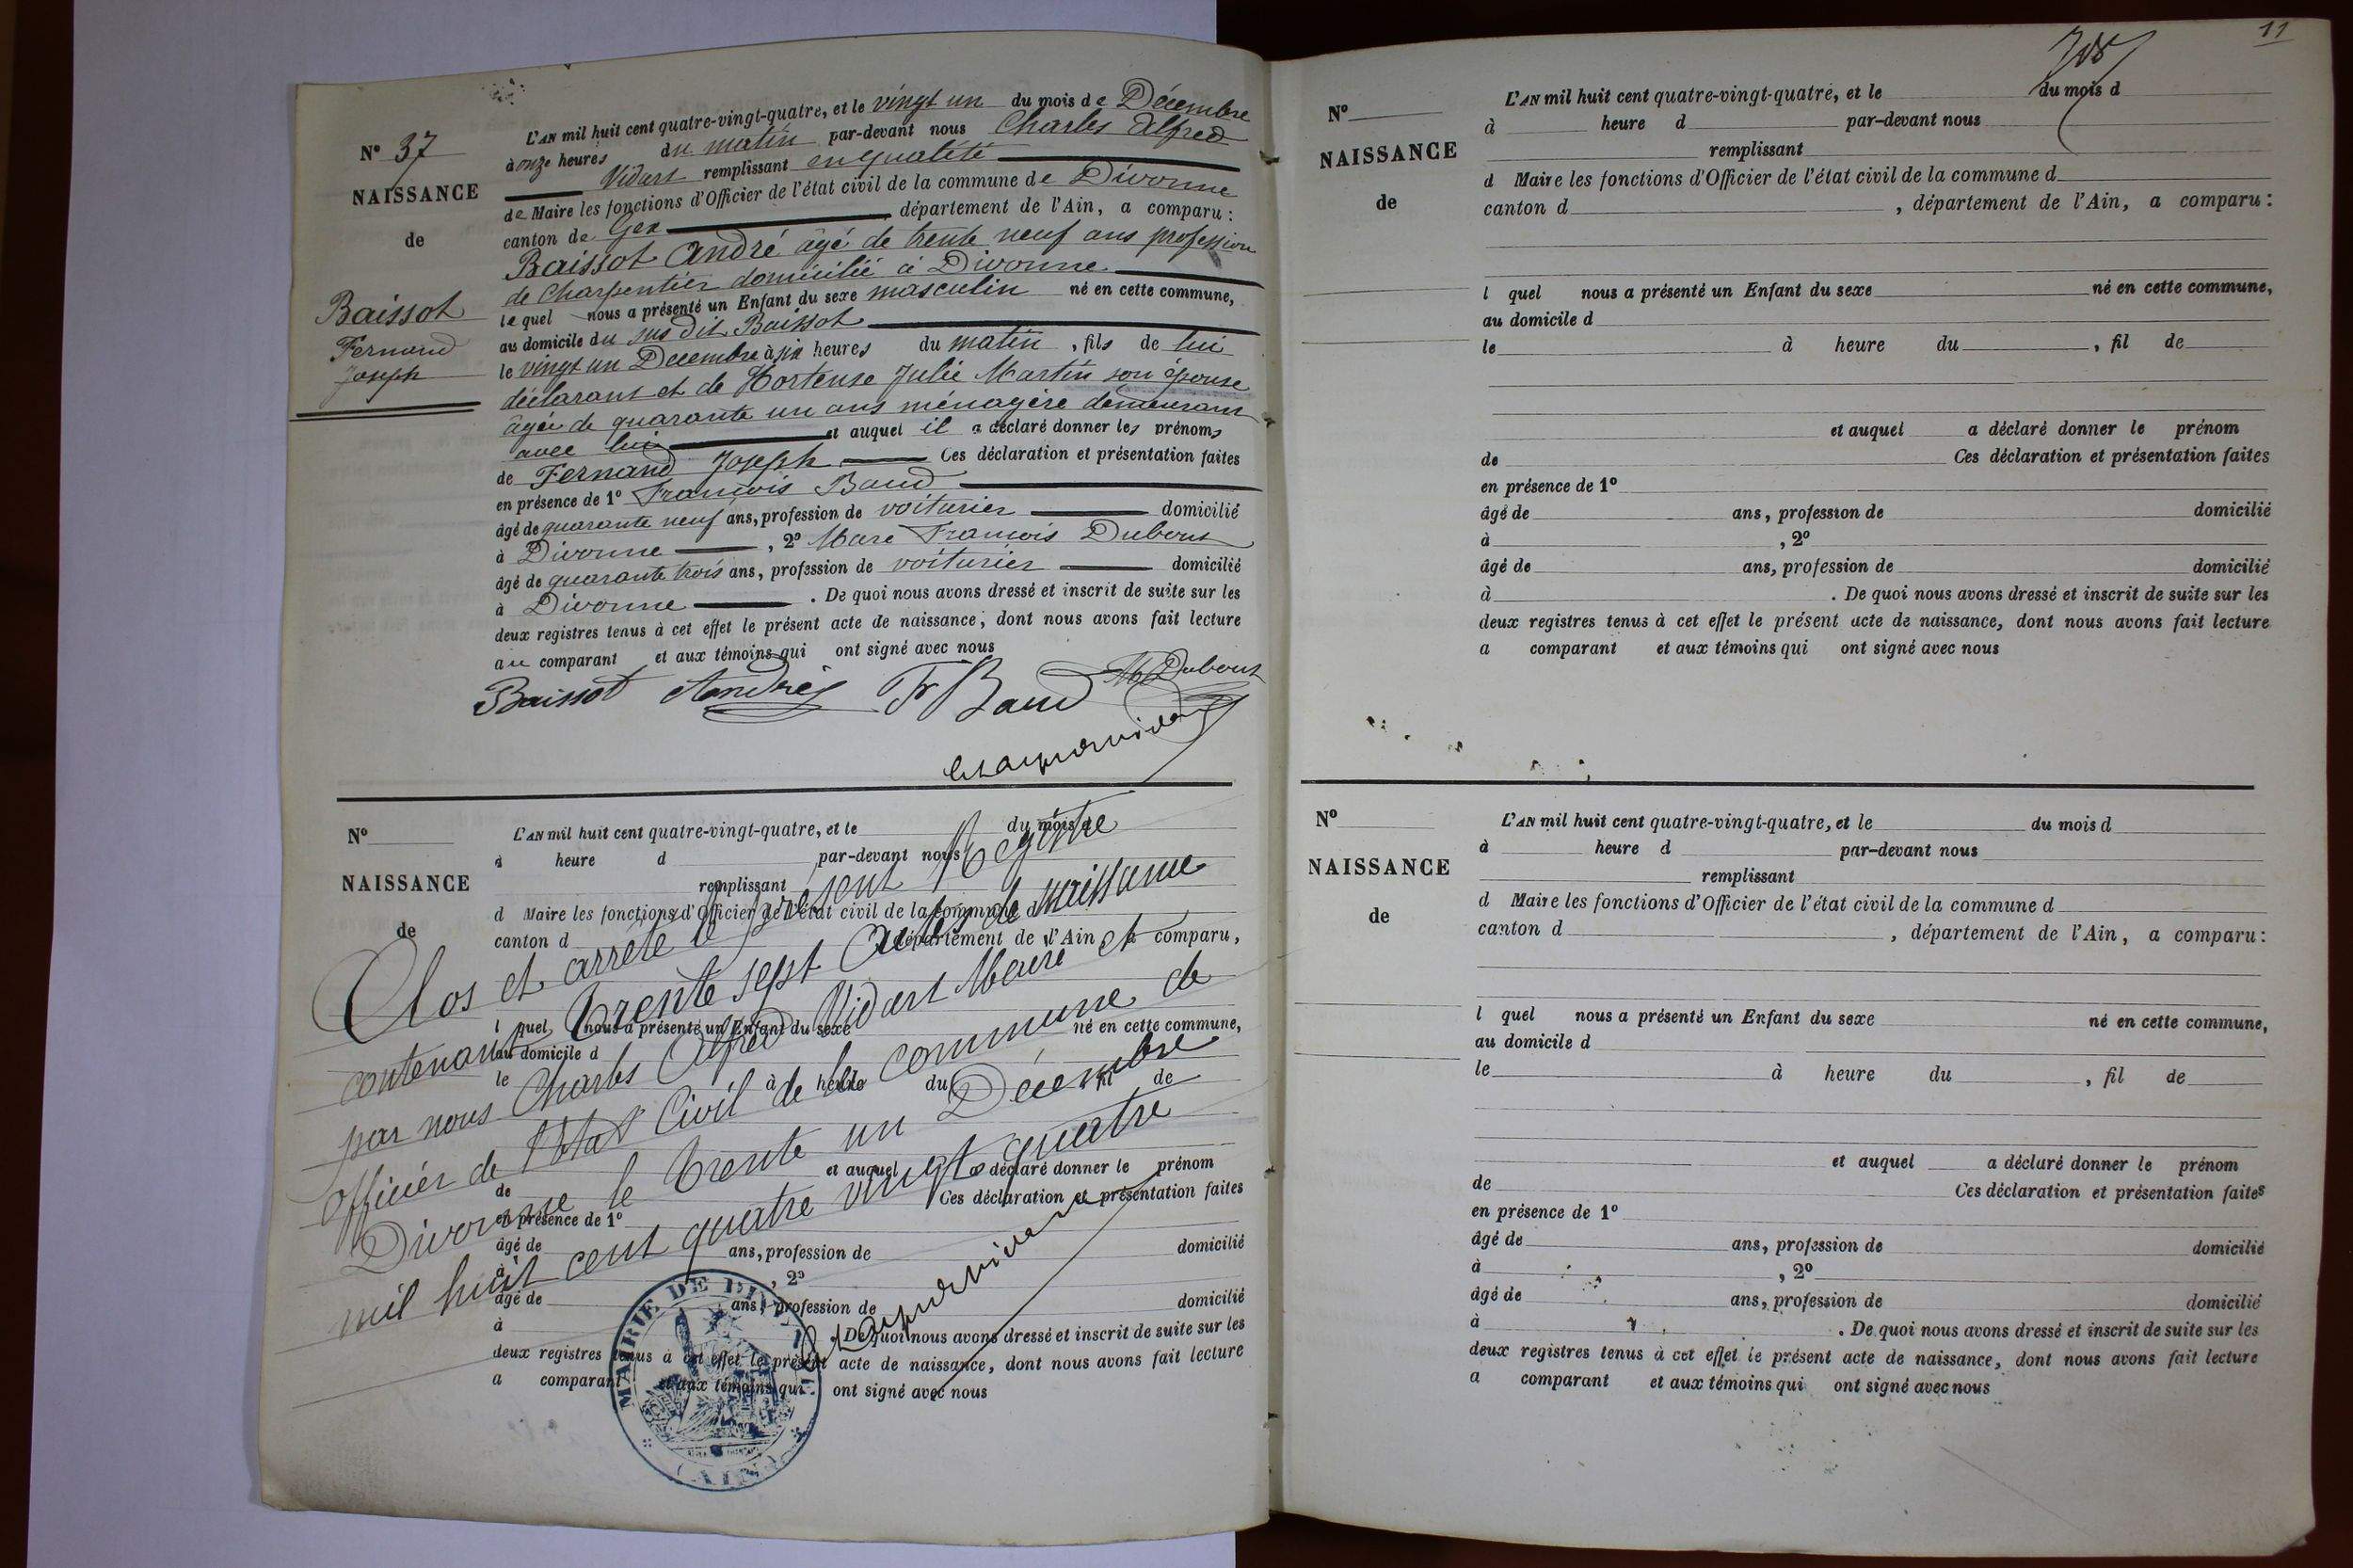 N° 37
NAISSANCE
de
Baissot
Fernand
Joseph
L'AN mil huit cent quatre-vingt-quatre, et le vingt un du mois de Décembre
à onze heures du matin par-devant nous Charles Alfred
Vidart remplissant en qualité
de Maire les fonctions d'Officier de l'état civil de la commune de Divonne
canton de Gex département de l'Ain, a comparu :
Baissot André âgé de trente neuf ans profession
de Charpentier domicilié à Divonne
le quel nous a présenté un Enfant du sexe masculin né en cette commune,
au domicile du sus dit Baissot
le vingt un Decembre à six heures du matin, fils de lui
déclarant et de Hortense Julie Martin son épouse
âgée de quarante un ans ménagère demeurant
avec lui et auquel il a déclaré donner les prénoms
de Fernand Joseph Ces déclaration et présentation faites
en présence de 1° François Baud
âgé de quarante neuf ans, profession de voiturier domicilié
à Divonne , 2° Marc François Dubout
âgé de quarante trois ans, profession de voiturier domicilié
à Divonne . De quoi nous avons dressé et inscrit de suite sur les
deux registres tenus à cet effet le présent acte de naissance, dont nous avons fait lecture
au comparant et aux témoins qui ont signé avec nous
Baissot André Fr Baud M Dubout
N°
NAISSANCE
de
L'AN mil huit cent quatre-vingt-quatre, et le du mois d
à heure d par-devant nous
remplissant
d Maire les fonctions d'Officier de l'état civil de la commune d
canton d département de l'Ain, a comparu,
l quel nous a présenté un Enfant du sexe né en cette commune,
au domicile d
le à heure du fil de
et auquel a déclaré donner le prénom
de Ces déclaration et présentation faites
en présence de 1°
âgé de ans, profession de domicilié
à , 2°
âgé de ans, profession de domicilié
à . De quoi nous avons dressé et inscrit de suite sur les
deux registres tenus à cet effet le présent acte de naissance, dont nous avons fait lecture
a comparant et aux témoins qui ont signé avec nous
Clos et arrêté le présent Registre
contenant trente sept actes de naissance
par nous Charles Alfred Vidart Maire et
officier de l'Etat Civil de la commune de
Divonne le trente un Décembre
mil huit cent quatre vingt quatre
MAIRIE DE DIVONNE
(AIN)
11
N°
NAISSANCE
de
L'AN mil huit cent quatre-vingt-quatre, et le du mois d
à heure d par-devant nous
remplissant
d Maire les fonctions d'Officier de l'état civil de la commune d
canton d , département de l'Ain, a comparu :
l quel nous a présenté un Enfant du sexe né en cette commune,
au domicile d
le à heure du , fil de
et auquel a déclaré donner le prénom
de Ces déclaration et présentation faites
en présence de 1°
âgé de ans, profession de domicilié
à , 2°
âgé de ans, profession de domicilié
à . De quoi nous avons dressé et inscrit de suite sur les
deux registres tenus à cet effet le présent acte de naissance, dont nous avons fait lecture
a comparant et aux témoins qui ont signé avec nous
N°
NAISSANCE
de
L'AN mil huit cent quatre-vingt-quatre, et le du mois d
à heure d par-devant nous
remplissant
d Maire les fonctions d'Officier de l'état civil de la commune d
canton d , département de l'Ain, a comparu :
l quel nous a présenté un Enfant du sexe né en cette commune,
au domicile d
le à heure du , fil de
et auquel a déclaré donner le prénom
de Ces déclaration et présentation faites
en présence de 1°
âgé de ans, profession de domicilié
à , 2°
âgé de ans, profession de domicilié
à . De quoi nous avons dressé et inscrit de suite sur les
deux registres tenus à cet effet le présent acte de naissance, dont nous avons fait lecture
a comparant et aux témoins qui ont signé avec nous